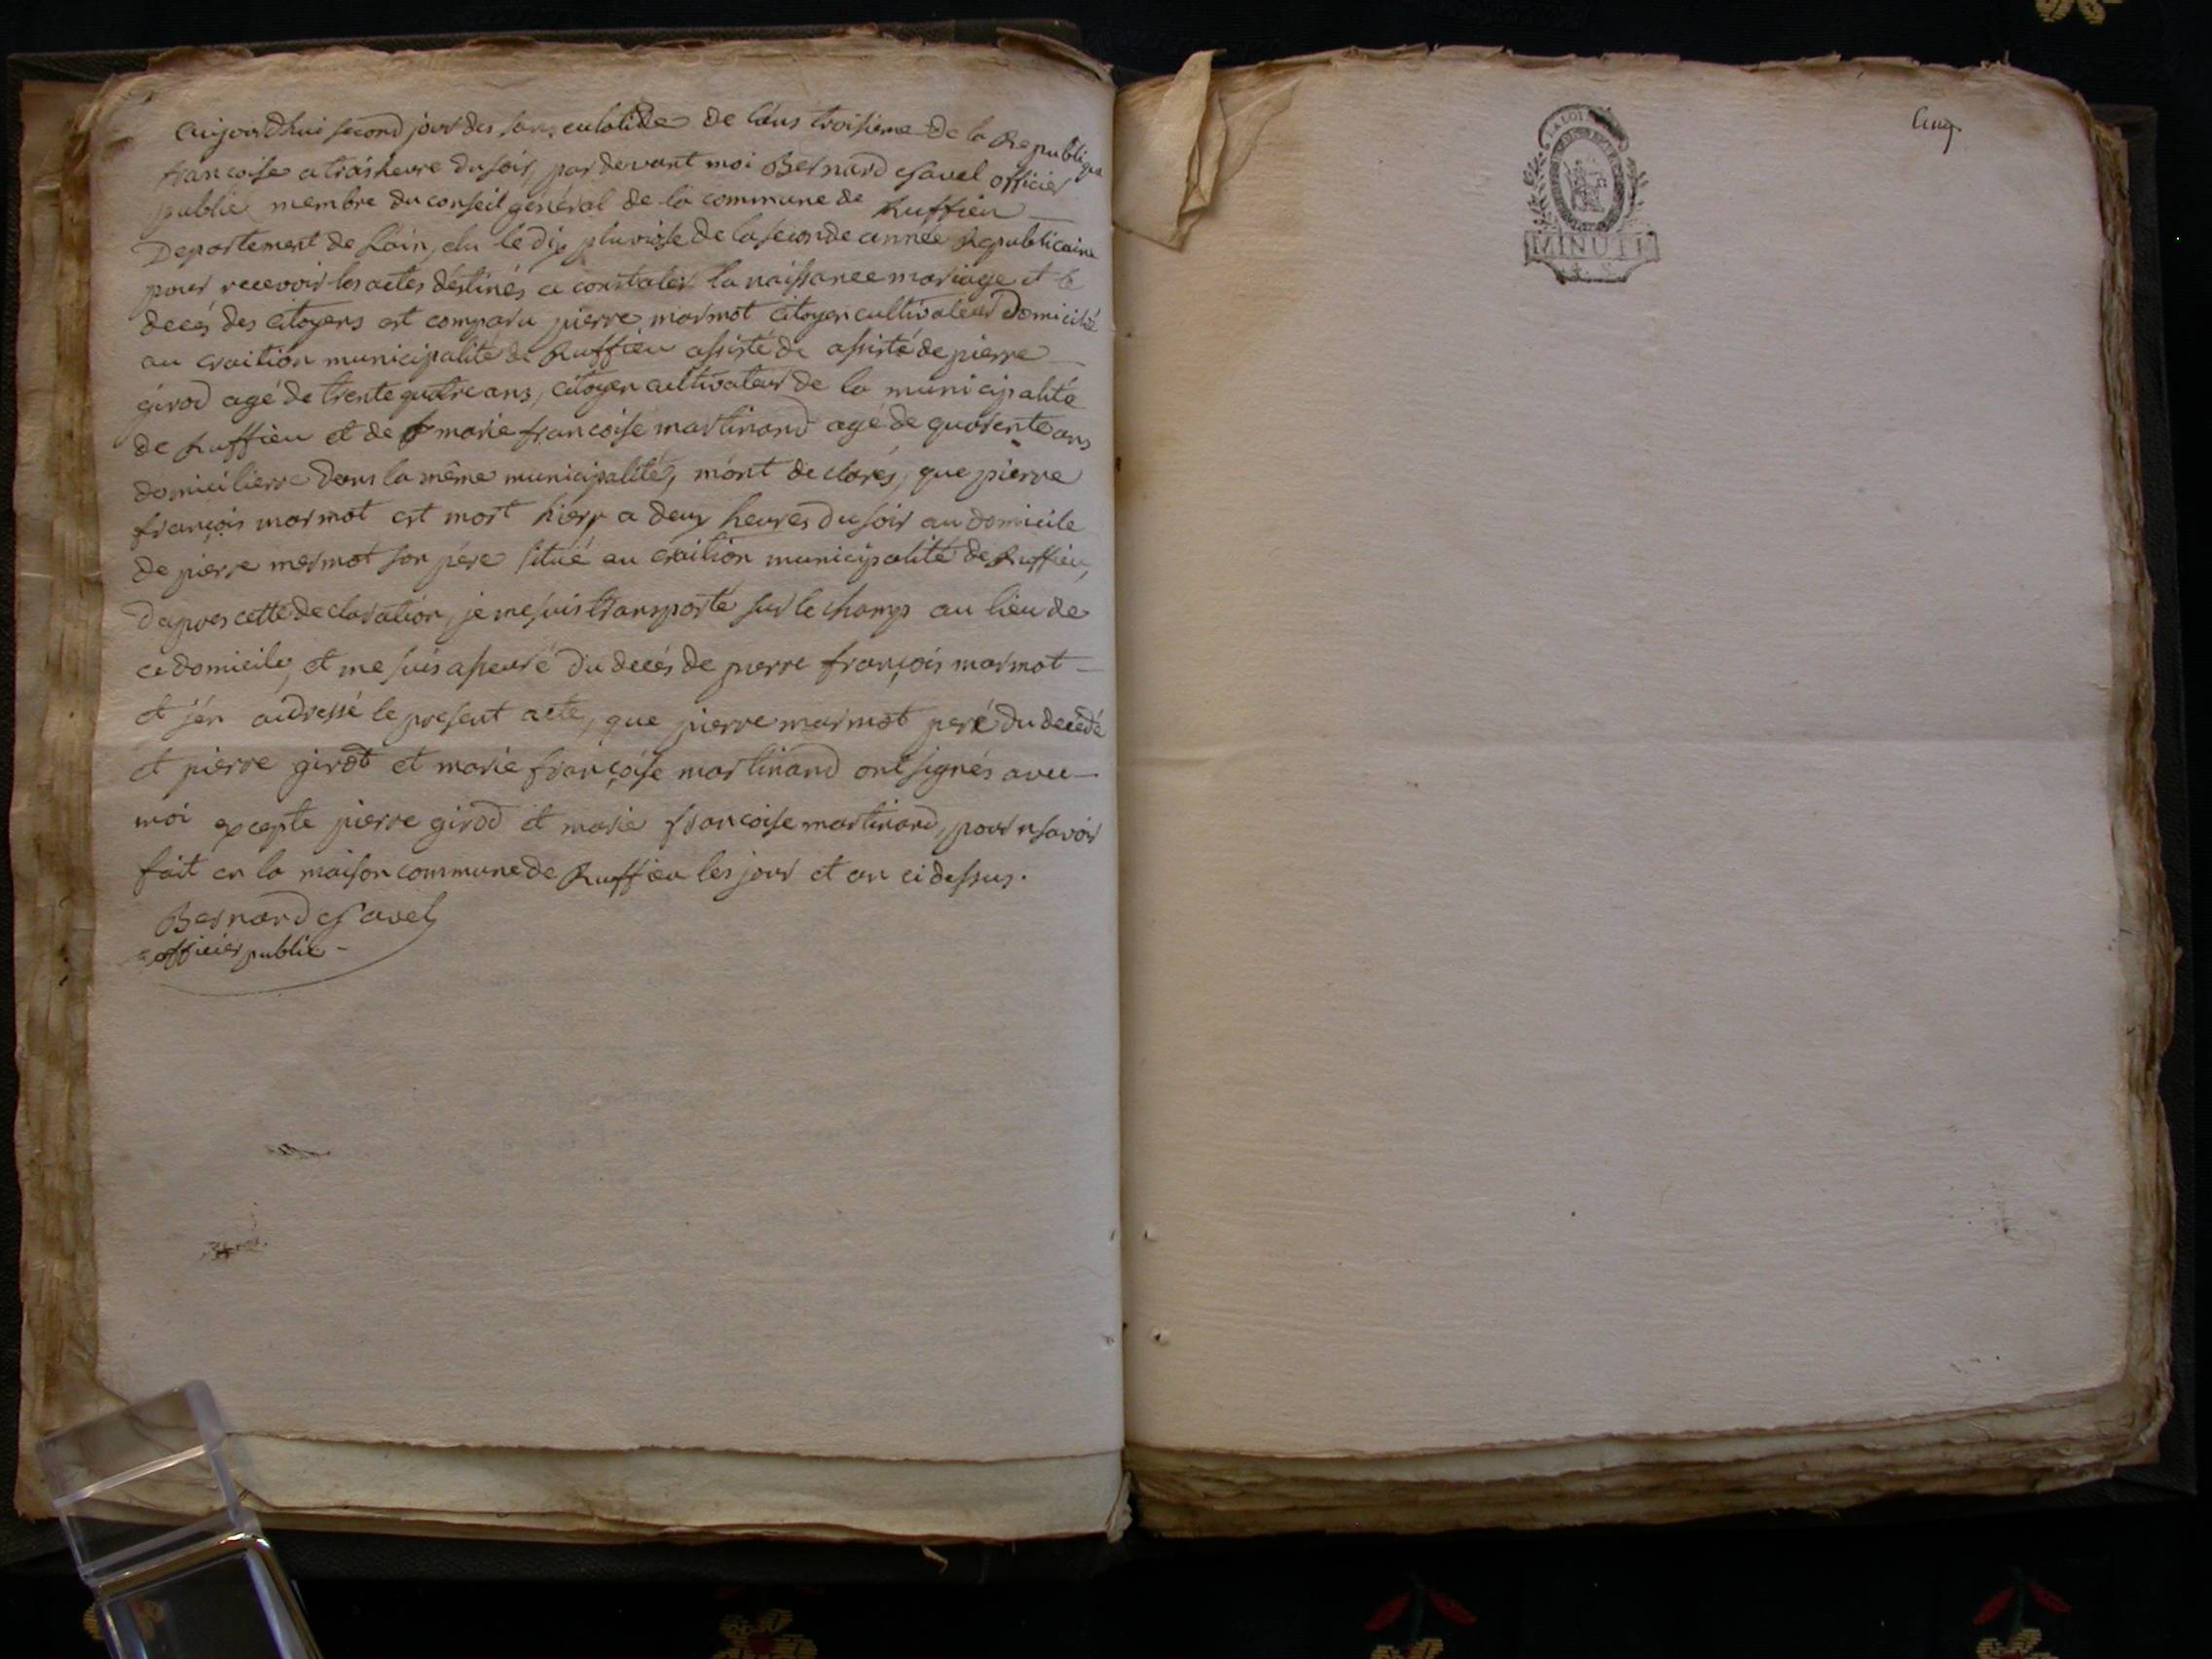 aujourdhui second jour des sans culotide de l'ans troisieme de la Republique
francoise a trois heure du soir, par devant moi Bernard Savel officier
public membre du conseil général de la commune de Ruffieu
Departement de Lain, elu le dix pluviose de la seconde année Republicaine
pour recevoir les actes déstinés a constater la naissance mariage et le
decés des citoyens est comparu pierre marmot citoyen cultivateur Domicilié
au craition municipalité de Ruffieu assisté de assisté de pierre
girod agé de trente quatre ans, citoyen cultivateur de la municipalité
de Ruffieu et de marie francoise martinand agé de quarente ans
domicilierre dans la même municipalité, m'ont declarés, que pierre
françois marmot est mort hierr a deux heures du soir au domicile
de pierre mermot son père situé au craition municipalité de Ruffieu,
Dapres cette declaration, je me suis transporté sur le champs au lieu de
ce domicile, et me suis asseuré du decés de pierre françois marmot
et j'én aidressé le present acte, que pierre marmot peré du decedé
et pierre girot et marie françoise martinand ont signés avec
moi excepte pierre girod et marie francoise martinand, pour n savoir
fait en la maison commune de Ruffieu les jour et an ci dessus.
Bernard Savel
officier public
LA LOI
MINUTE
Cinq